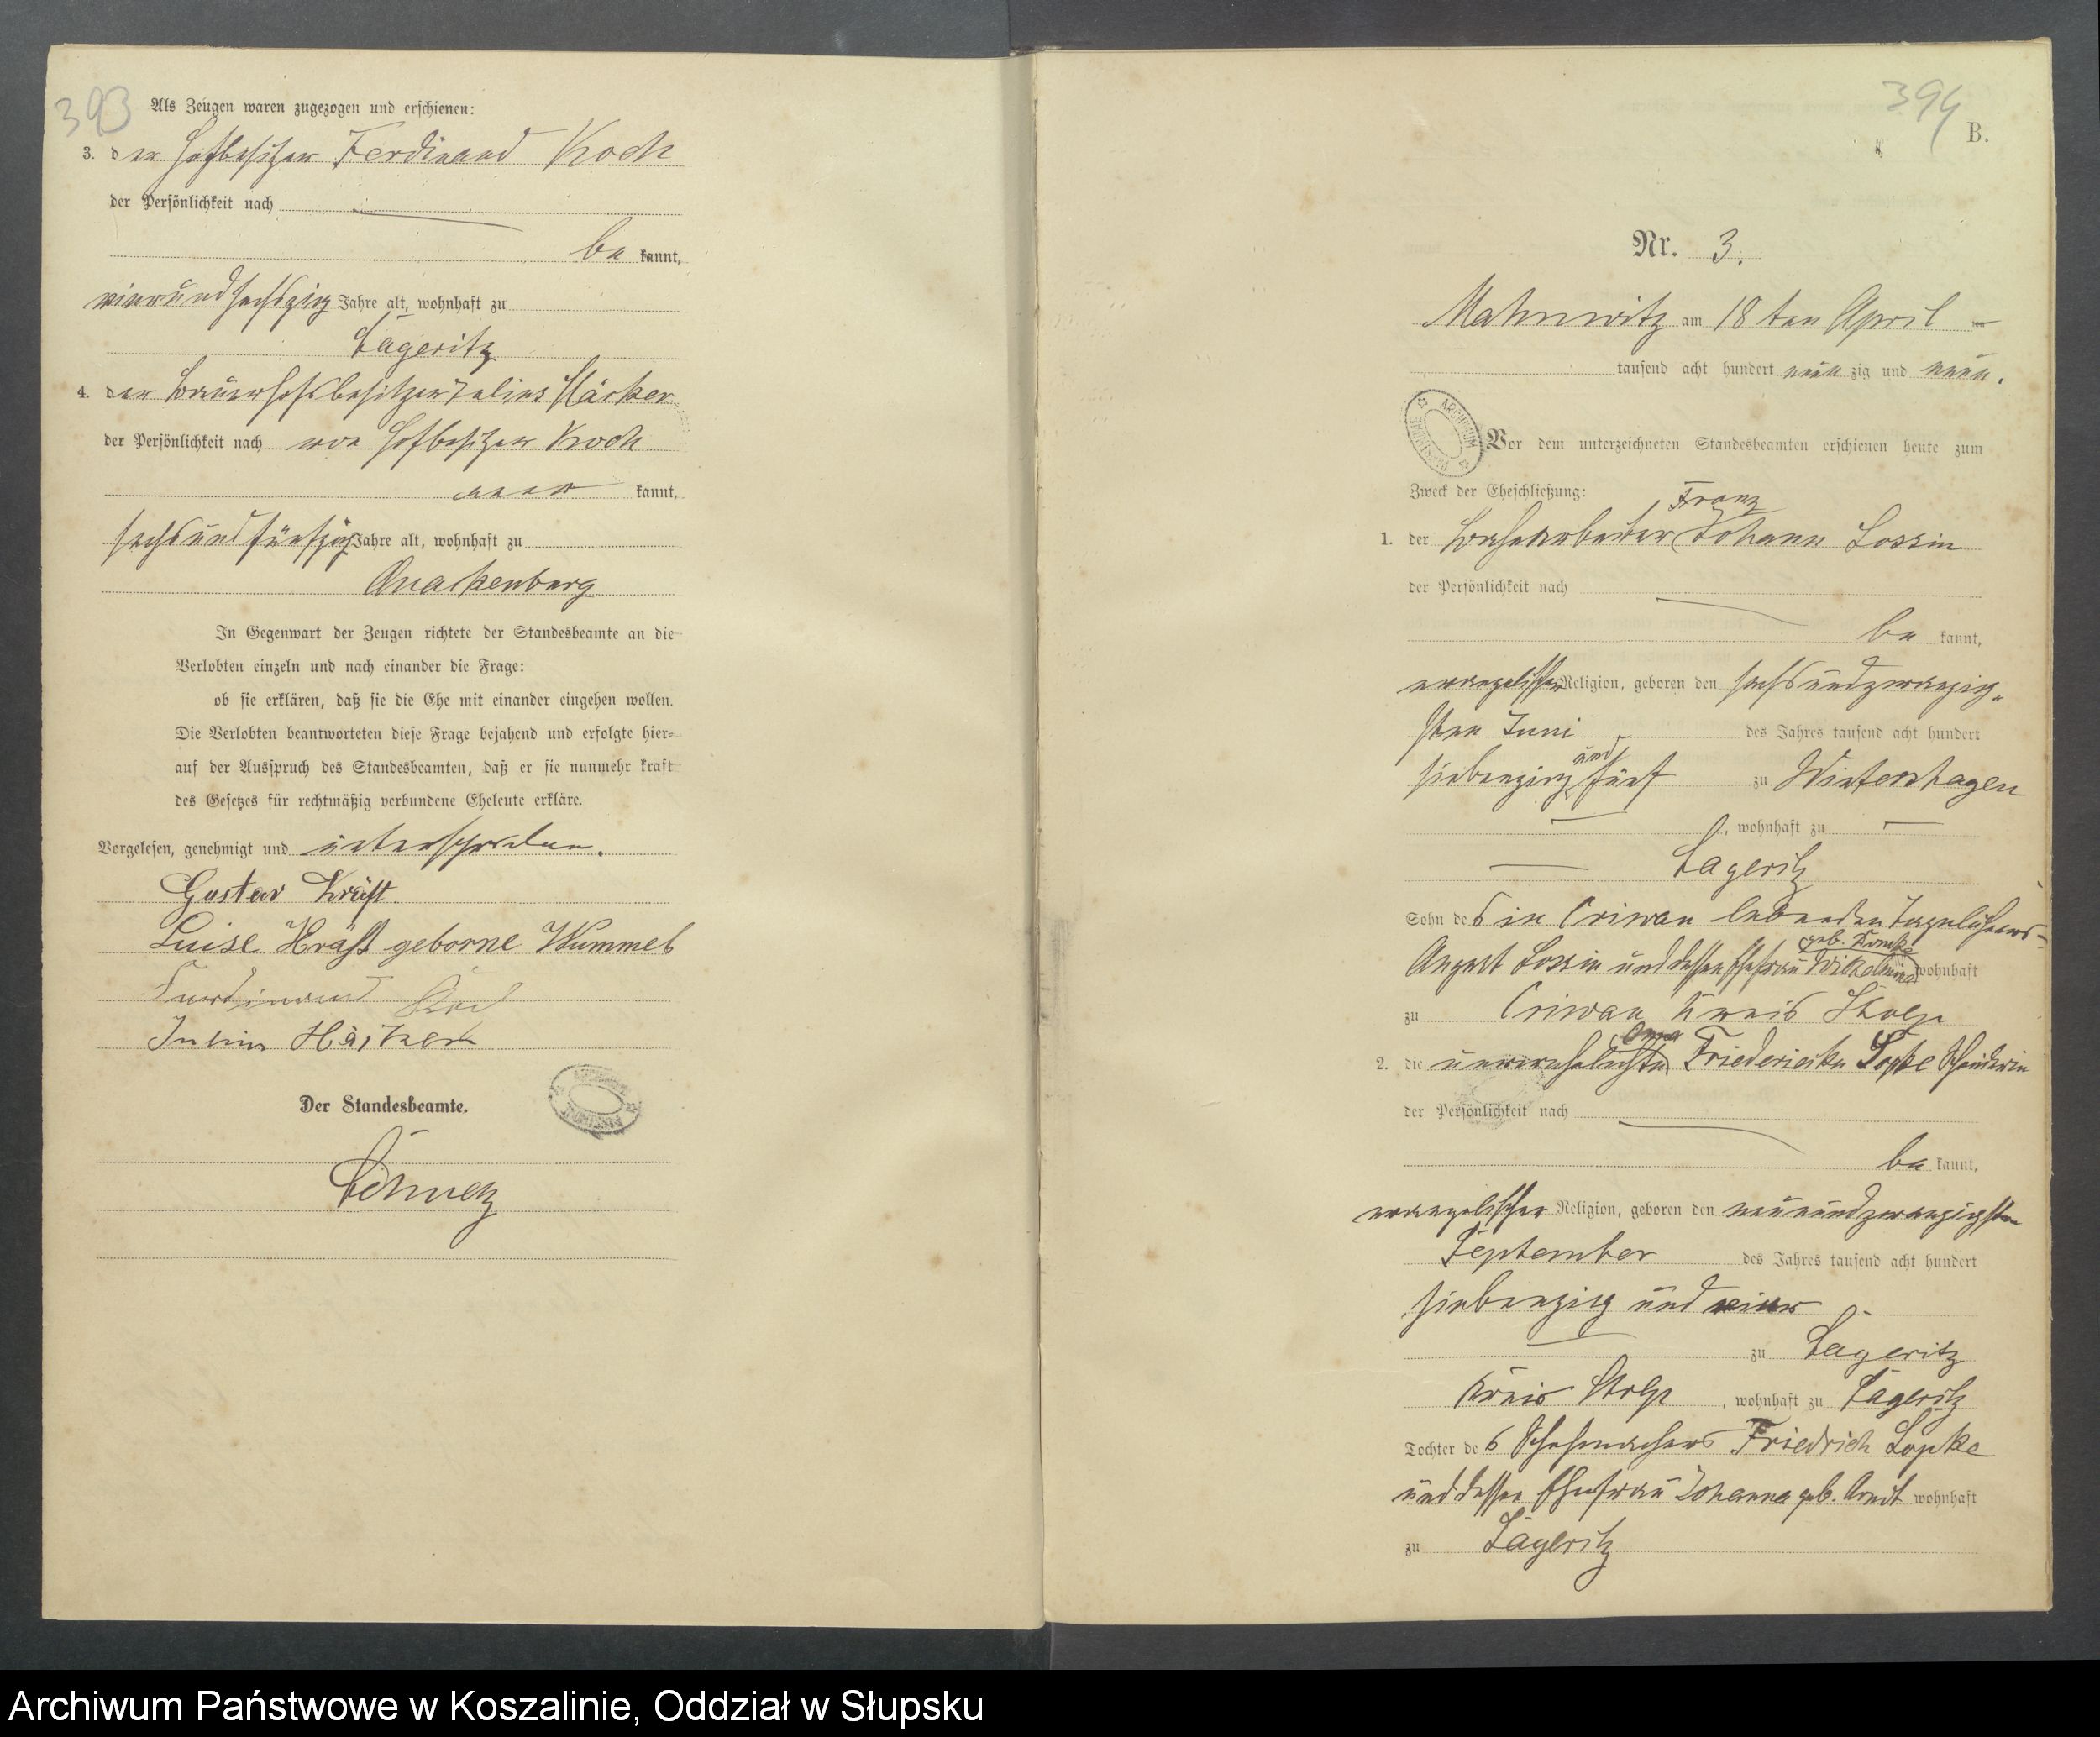 393
Als Zeugen waren zugezogen und erschienen:
3. der Hofbesitzer Ferdinand Koch
der Persönlichkeit nach
be kannt,
vierundsechszig Jahre alt, wohnhaft zu
Lägeritz
4. der Bauerhofsbesitzer Julius Härtker
der Persönlichkeit nach von Hofbesitzer Koch
aner kannt,
sechsundfünfzig Jahre alt, wohnhaft zu
Quackenburg
In Gegenwart der Zeugen richtete der Standesbeamte an die
Verlobten einzeln und nach einander die Frage:
ob sie erklären, daß sie die Ehe mit einander eingehen wollen.
Die Verlobten beantworteten diese Frage bejahend und erfolgte hier-
auf der Ausspruch des Standesbeamten, daß er sie nunmehr kraft
des Gesetzes für rechtmäßig verbundene Eheleute erkläre.
Vorgelesen, genehmigt und unterschrieben.
Gustav Kräft.
Luise Kräft geborne Wummel
Ferdinand Koch
Julius
Der Standesbeamte.
394
B.
Nr. 3.
Mahnwitz am 18 ten April
tausend acht hundert neun zig und neun.
Vor dem unterzeichneten Standesbeamten erschienen heute zum
Zweck der Eheschließung:
Franz
1. der Johann Lossin
der Persönlichkeit nach
be kannt,
evangelischer Religion, geboren den sechsundzwanzig-
sten Juni des Jahres tausend acht hundert
und
siebenzig fünf zu Wintershagen
, wohnhaft zu
Lägeritz
Sohn des in Criwan lebenden Tagelöhners
geb.
August Lossin und dessen Ehefrau Wilhelmine wohnhaft
zu Criwan Kreis Stolp
2. die unverehelichte Friedericke Schneiderin
der Persönlichkeit nach
be kannt,
evangelischer Religion, geboren den neunundzwanzigsten
September des Jahres tausend acht hundert
siebenzig und vier
zu Lägeritz
Kreis Stolp , wohnhaft zu Lägeritz
Tochter des Schuhmachers Friedrich Lopke
und dessen Ehefrau Johanna geb. Arndt wohnhaft
zu Lägeritz
Archiwum Państwowe w Koszalinie, Oddział w Słupsku